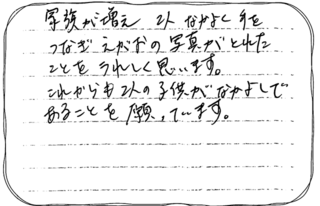 家族が増え 2人 なかよく 手を
つなぎ えがおの 写真がとれた
ことを うれしく思います。
これからも 2人の子供がなかよしで
あることを 願っています。